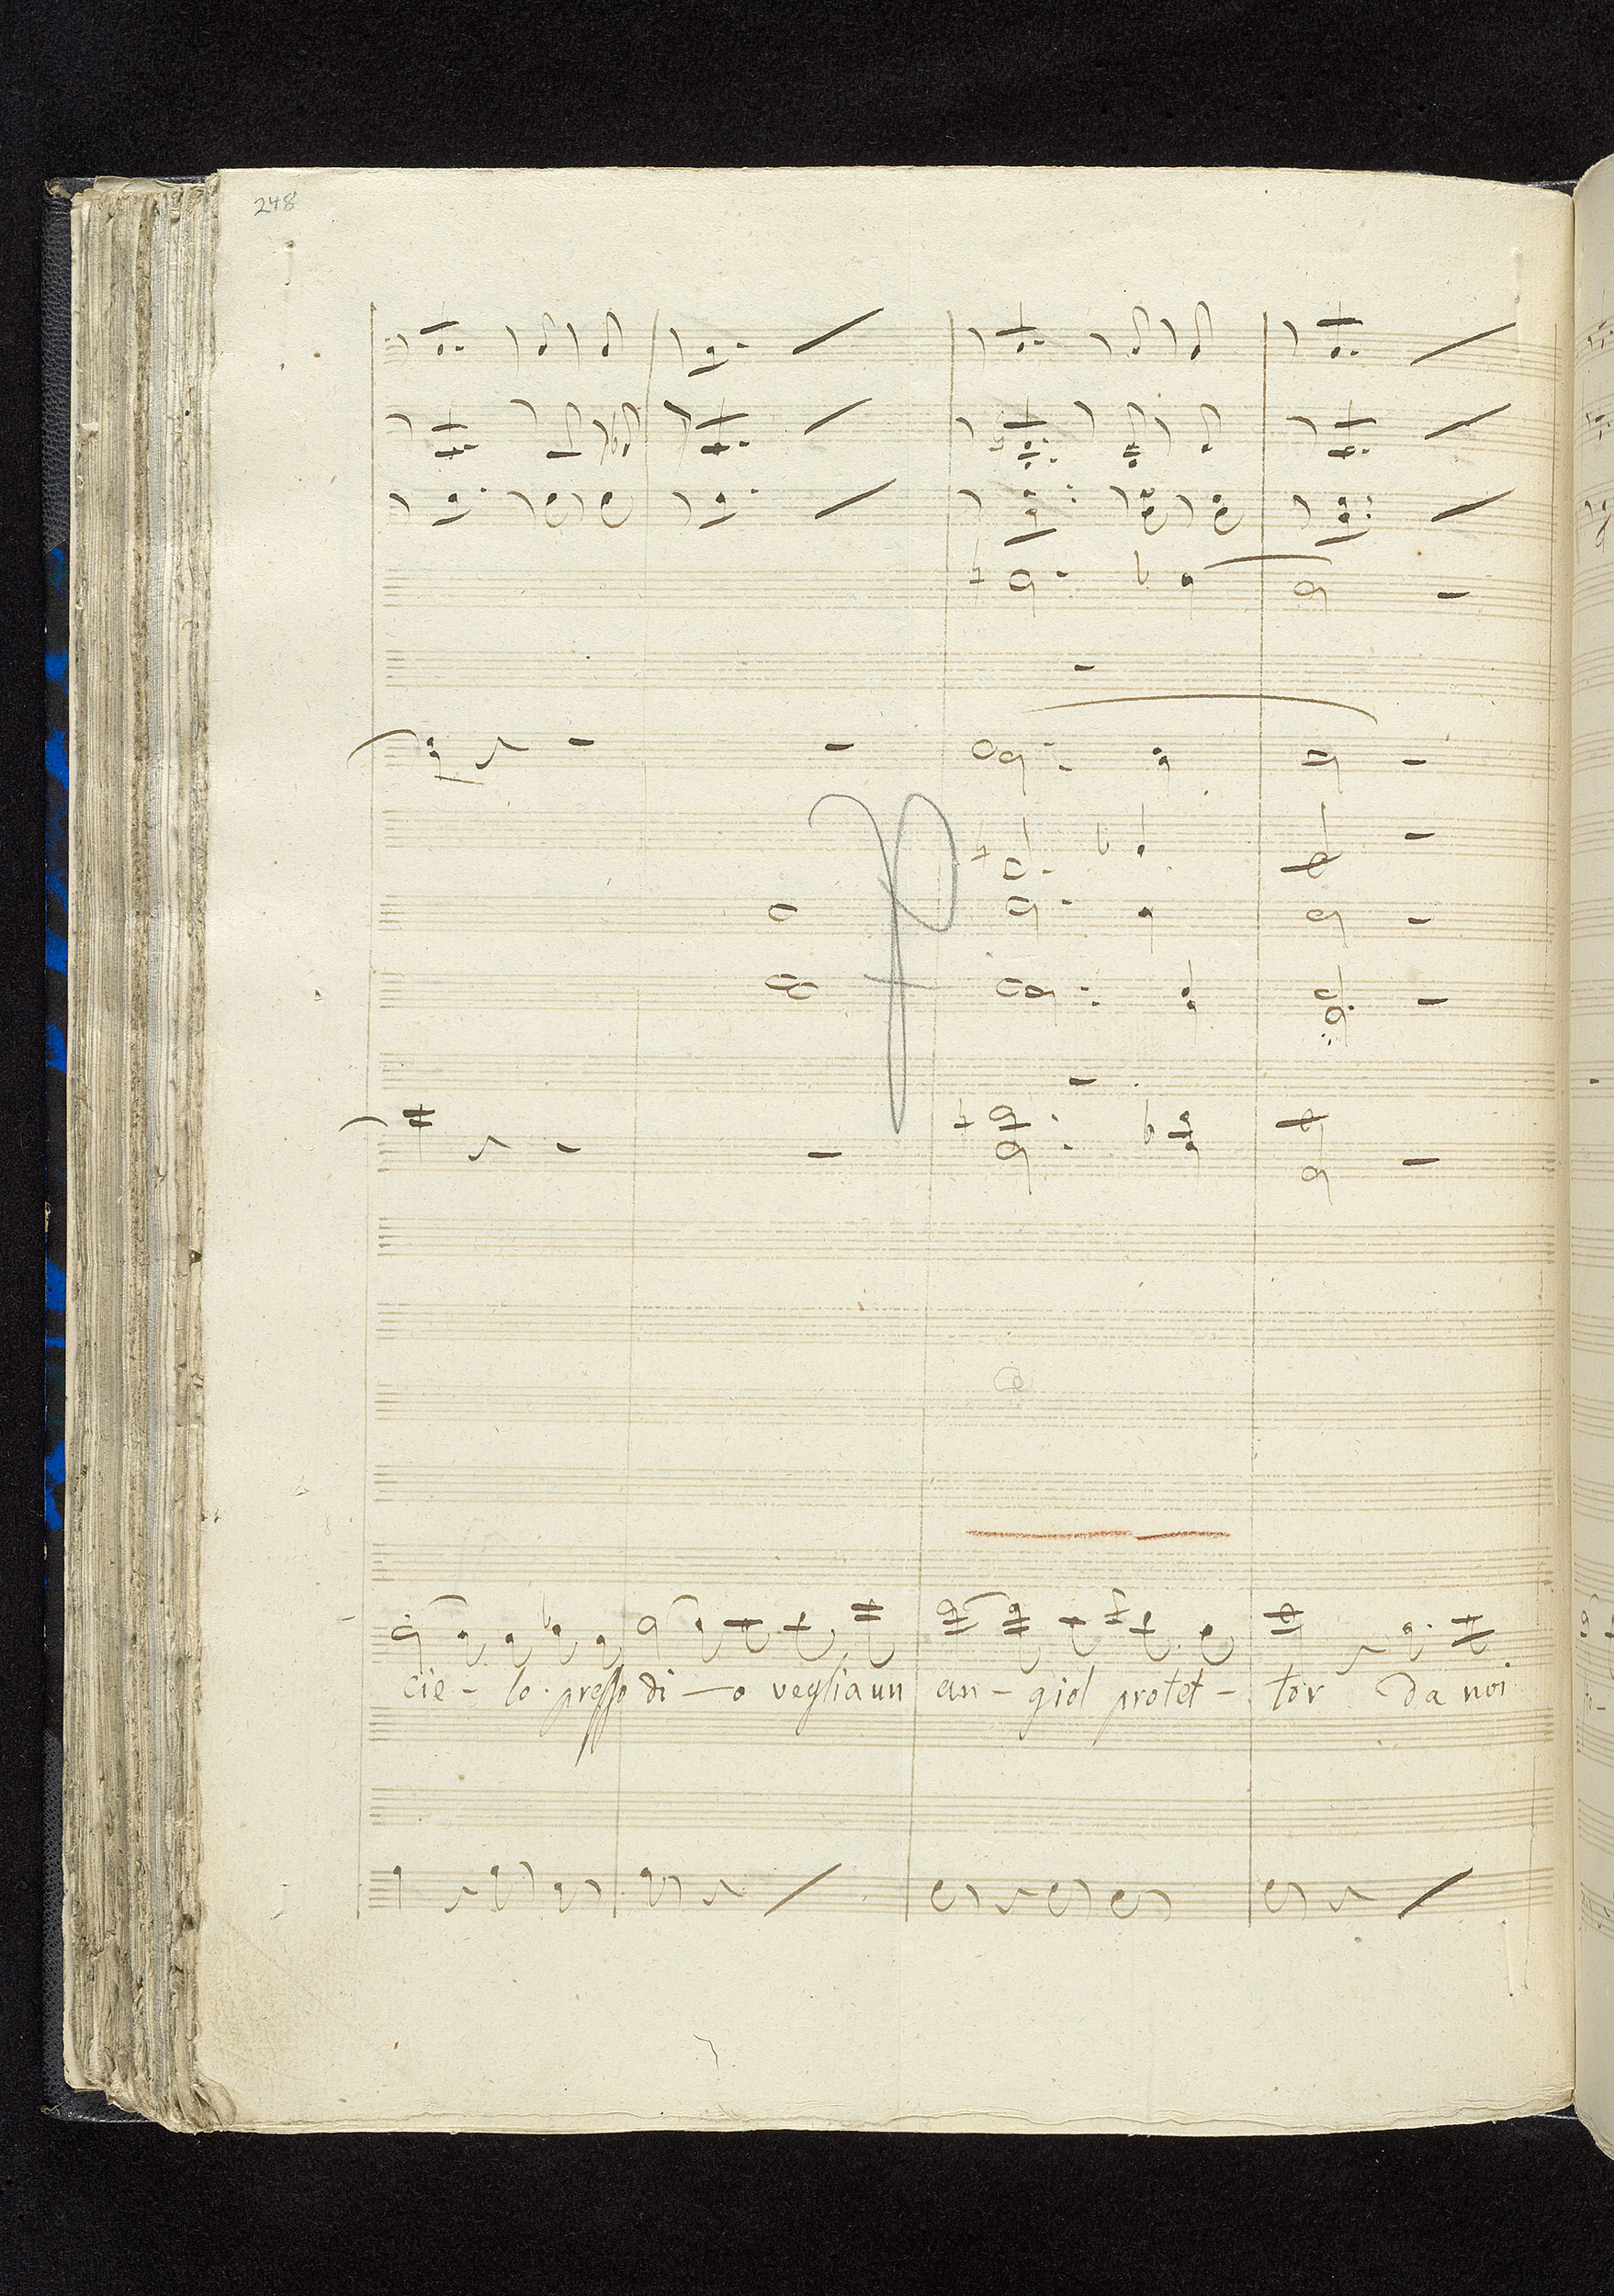 248
p
cie - lo presso di - o veglia un an - giol protet - tor da noi